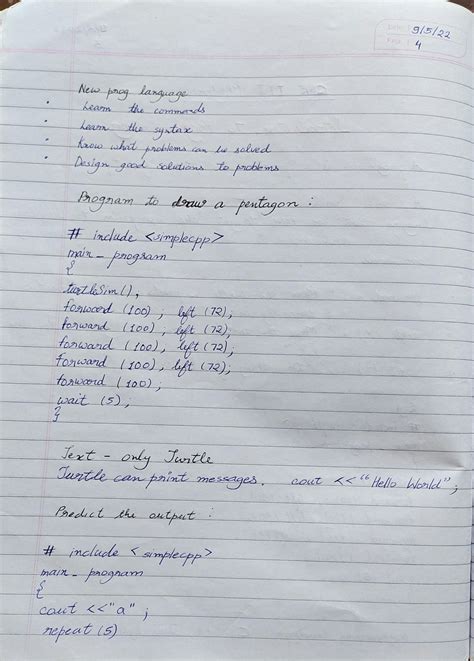 9/5/22
4
New prog language
• Learn the commands
• Learn the syntax
• Know what problems can be solved
• Design good solutions to problems
Program to draw a pentagon :
# include <simplecpp>
main_program
{
turtleSim();
forward (100); left (72);
forward (100); left (72);
forward (100); left (72);
forward (100); left (72);
forward (100);
wait (5);
}
Text - only Turtle
Turtle can print messages. cout << "Hello World";
Predict the output :
# include <simplecpp>
main_program
{
cout <<"a" ;
repeat (5)